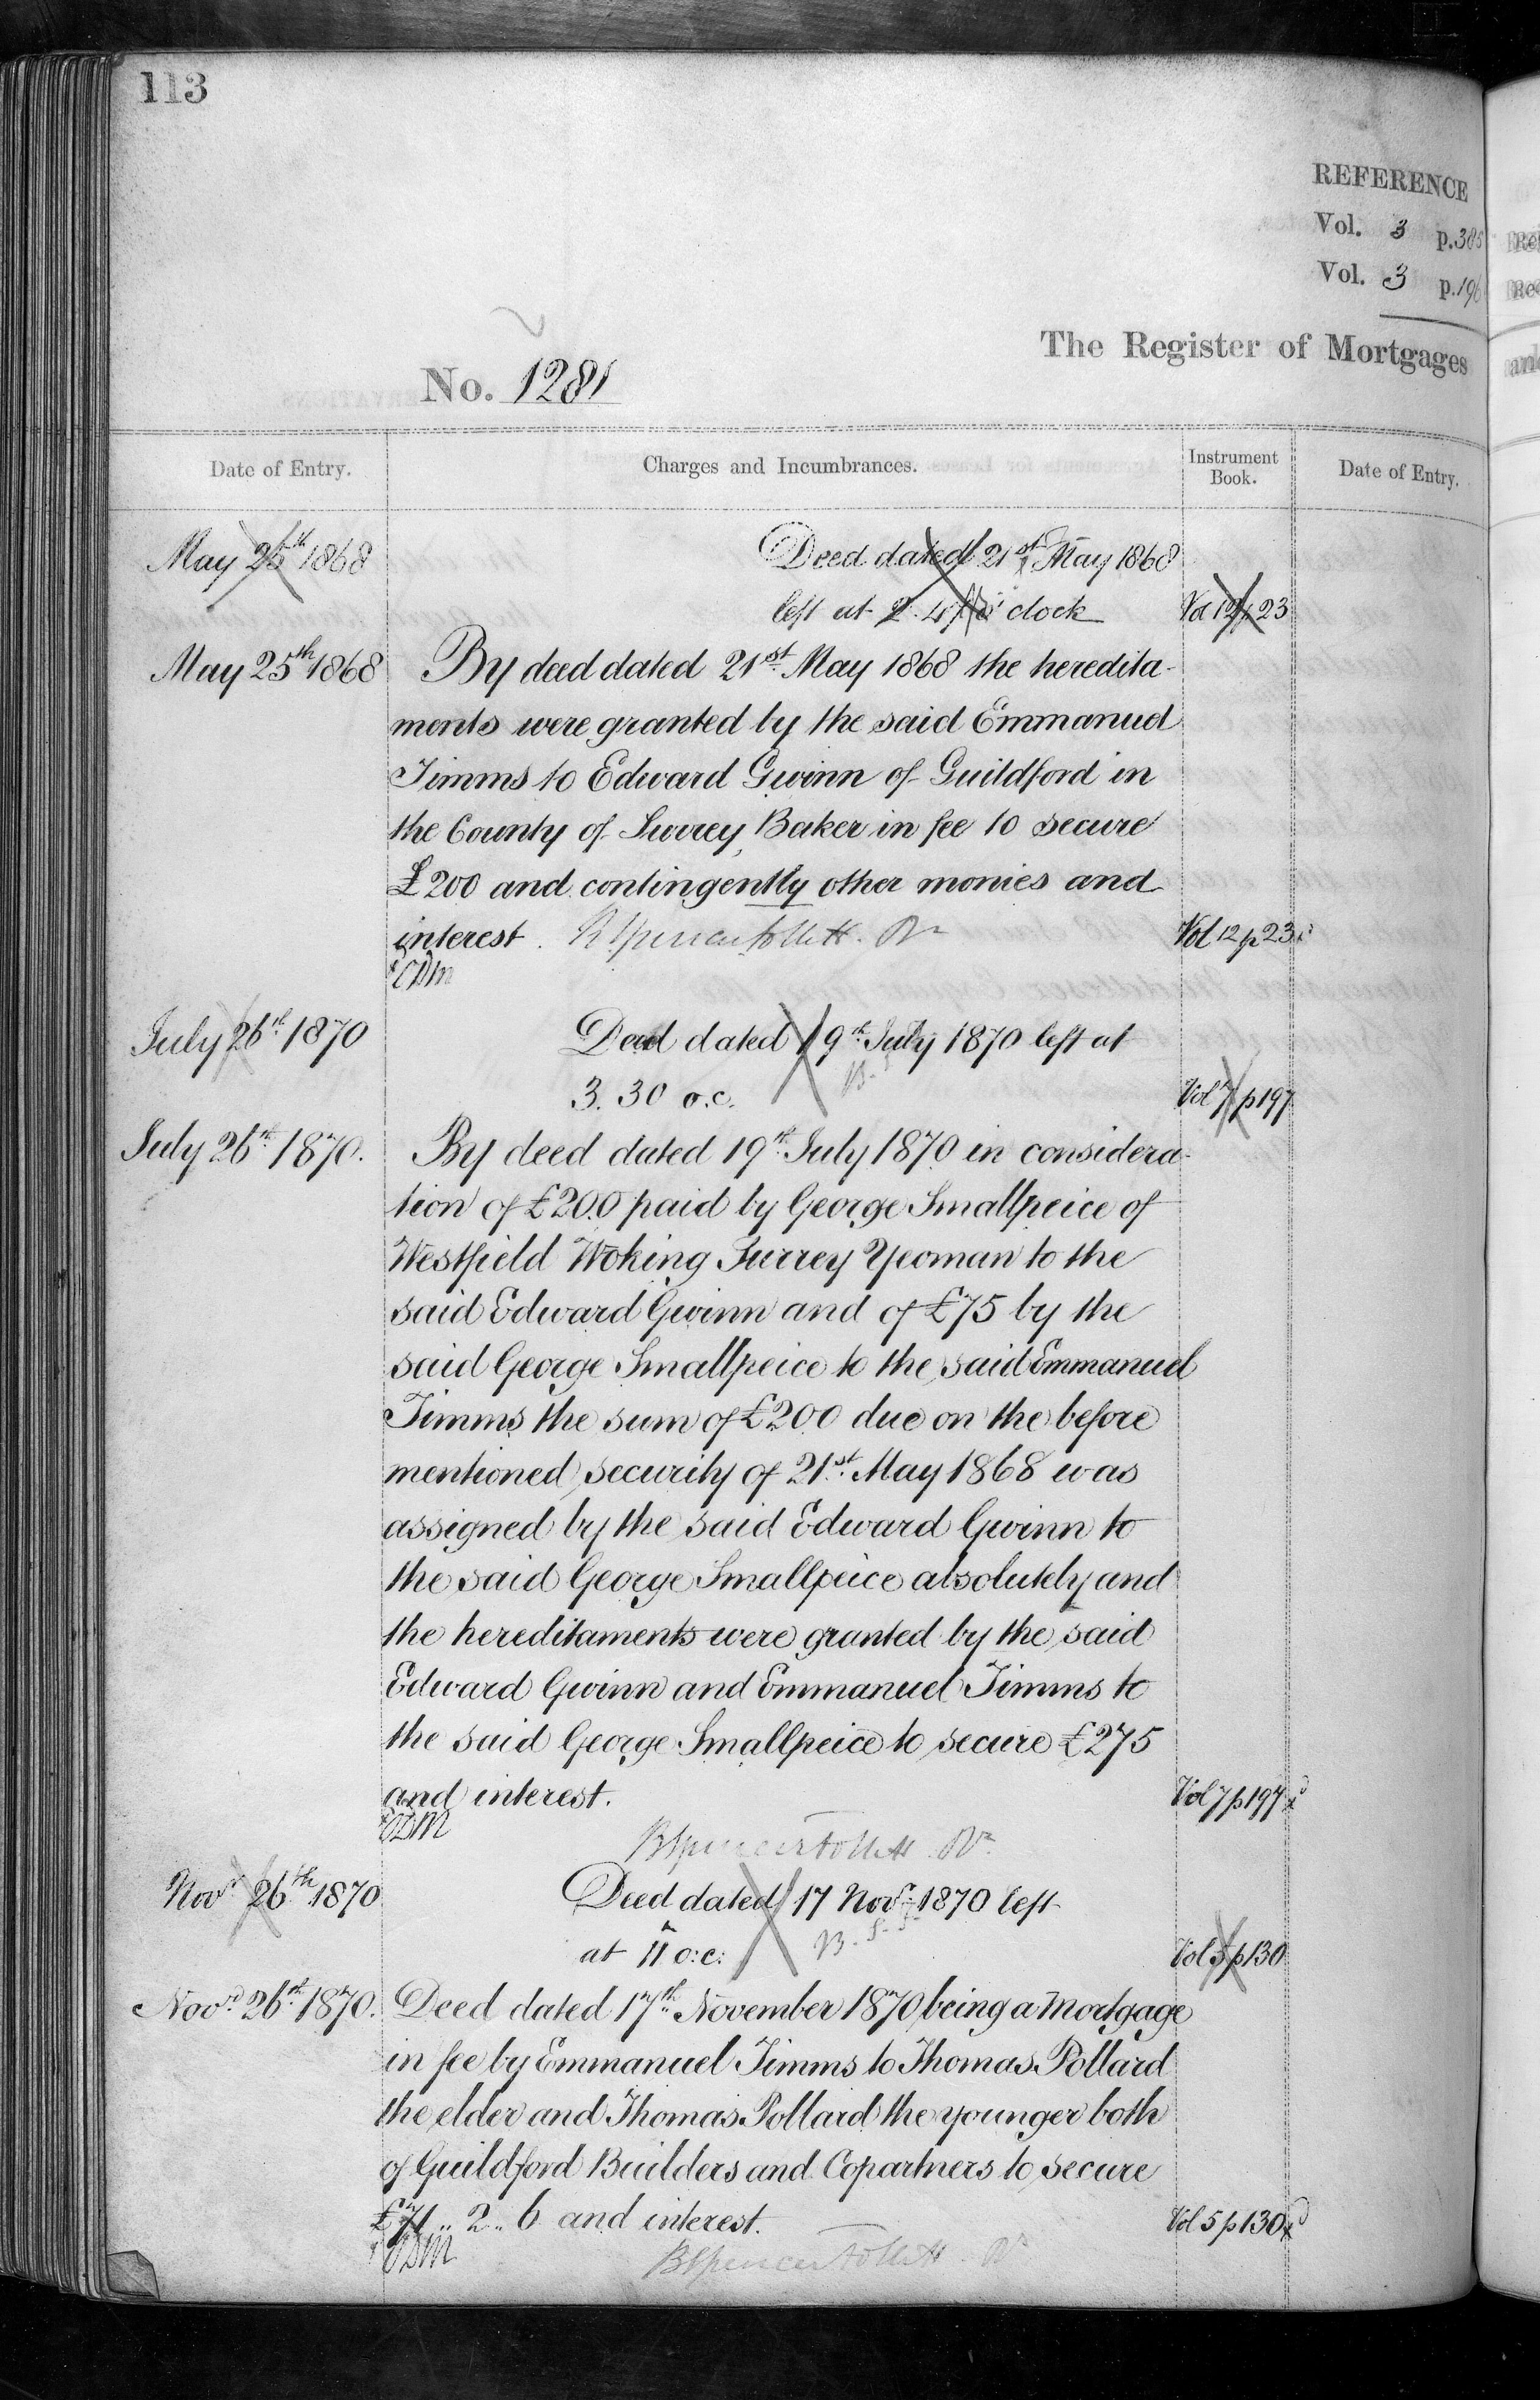 113
REFERENCE
Vol. 3 p.385
Vol. 3 p.196
The Register of Mortgages
No. 1281
Date of Entry. Charges and Incumbrances. Instrument Book. Date of Entry.
May 25th 1868 Deed dated 21st May 1868
left at 2.45 o'clock Vol 12 p 23
May 25th 1868 By deed dated 21st May 1868 the heredita-
ments were granted by the said Emmanuel
Timms to Edward Gwinn of Guildford in
the County of Surrey, Baker in fee to secure
£200 and contingently other monies and
interest. B Spencer Follett. Rr Vol 12 p 23
EDM
July 26th 1870 Deed dated 19th July 1870 left at
3.30 o.c. Vol 7 p 197
July 26th 1870. By deed dated 19th July 1870 in considera-
tion of £200 paid by George Smallpeice of
Westfield Woking Surrey Yeoman to the
said Edward Gwinn and of £75 by the
said George Smallpeice to the said Emmanuel
Timms the sum of £200 due on the before
mentioned security of 21st May 1868 was
assigned by the said Edward Gwinn to
the said George Smallpeice absolutely and
the hereditaments were granted by the said
Edward Gwinn and Emmanuel Timms to
the said George Smallpeice to secure £275
and interest. Vol 7 p 197
EDM
B Spencer Follett Rr
Novr 26th 1870 Deed dated 17 Novr 1870 left
at 11 o.c. Vol 5 p 130
Novr 26th 1870. Deed dated 17th November 1870 being a Mortgage
in fee by Emmanuel Timms to Thomas Pollard
the elder and Thomas Pollard the younger both
of Guildford Builders and Copartners to secure
£71..2..6 and interest. Vol 5 p 130
EDM
B Spencer Follett Rr